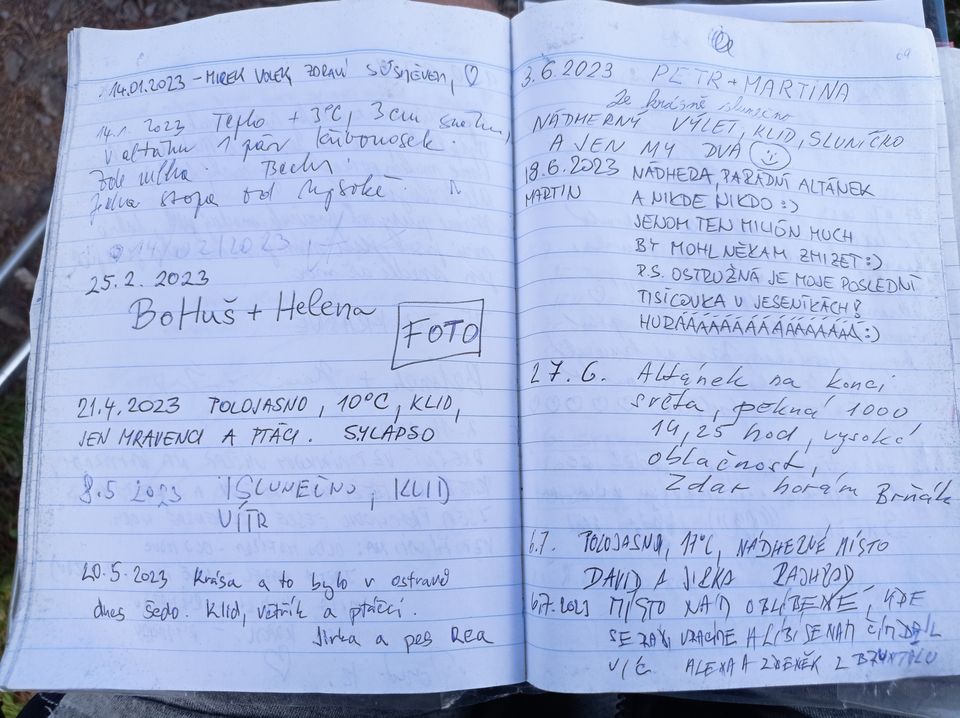 14.01.2023 - MIREK VOLEK ZDRAVÍ S ÚSMĚVEM, ♡
14.1. 2023 Teplo + 3°C, 3cm sněhu,
v altánu 1 pár
Jedna stopa od Vysoké.
14/02/2023
25.2. 2023
BoHuš + Helena
FOTO
21.4.2023 POLOJASNO, 10°C, KLID,
JEN MRAVENCI A PTÁCI. SYLAPSO
8.5 2023 SLUNEČNO, KLID
VÍTR
20.5.2023 Krása a to bylo v ostravě
dnes šedo. Klid, větřík a ptáčci.
Jirka a pes Rea
3.6.2023 PETR + MARTINA
Je krásně slunečno
NÁDHERNÝ VÝLET, KLID, SLUNÍČKO
A JEN MY DVA
18.6.2023 NÁDHERA, PARÁDNÍ ALTÁNEK
MARTIN A NIKDE NIKDO :)
JENOM TEN MILIÓN MUCH
BY MOHL NĚKAM ZMIZET :)
P.S. OSTRUŽNÁ JE MOJE POSLEDNÍ
TISÍCOVKA V JESENÍKÁCH!
HURÁÁÁÁÁÁÁÁÁÁÁÁÁÁÁ :)
27.6. Altánek na konci
světa, pěkná 1000
14,25 hod, vysoká
oblačnost,
Zdar horám Brňák
6.7. POLOJASNO, 17°C, NÁDHERNÉ MÍSTO
DAVID A JIRKA RAJHRAD
6.7.2023 MÍSTO NÁM OBLÍBENÉ, KDE
SE A LÍBÍ SE NÁM ČÍM DÁL
VÍC. ALENA A ZDENĚK Z BRUNTÁLU